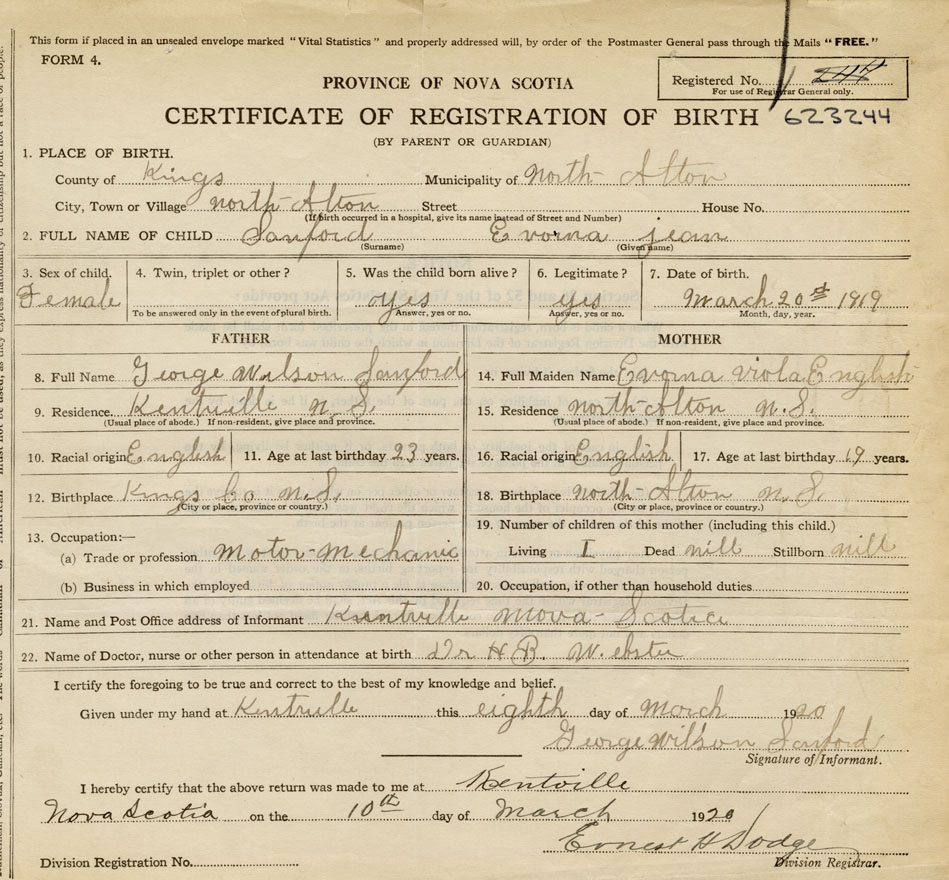 This form if placed in an unsealed envelope marked "Vital Statistics" and properly addressed will, by order of the Postmaster General pass through the Mails "FREE."
FORM 4.
Registered No.
For use of Registrar General only.
PROVINCE OF NOVA SCOTIA
CERTIFICATE OF REGISTRATION OF BIRTH 623244
(BY PARENT OR GUARDIAN)
1. PLACE OF BIRTH.
County of Kings Municipality of North Alton
City, Town or Village north-Alton Street House No.
(If birth occurred in a hospital, give its name instead of Street and Number)
2. FULL NAME OF CHILD Sanford Evorna jean
(Surname) (Given name)
3. Sex of child. 4. Twin, triplet or other? 5. Was the child born alive? 6. Legitimate? 7. Date of birth.
Female yes yes March 20 1919
To be answered only in the event of plural birth. Answer, yes or no. Answer, yes or no. Month, day, year.
FATHER MOTHER
8. Full Name George Wilson Sanford 14. Full Maiden Name Evorna viola English
9. Residence. Kentville N.S. 15. Residence north-Alton N.S.
(Usual place of abode.) If non-resident, give place and province. (Usual place of abode.) If non-resident, give place and province.
10. Racial origin English 11. Age at last birthday 23 years. 16. Racial origin English 17. Age at last birthday 19 years.
12. Birthplace Kings Co N.S. 18. Birthplace north-Alton N.S.
(City or place, province or country.) (City or place, province or country.)
13. Occupation:— 19. Number of children of this mother (including this child.)
(a) Trade or profession Motor-mechanic Living I Dead nill Stillborn nill
(b) Business in which employed 20. Occupation, if other than household duties
21. Name and Post Office address of Informant Kentville Nova-Scotia
22. Name of Doctor, nurse or other person in attendance at birth Dr H.B. Webster
I certify the foregoing to be true and correct to the best of my knowledge and belief.
Given under my hand at Kentville this eighth day of March 1920
George Wilson Sanford
Signature of Informant.
I hereby certify that the above return was made to me at Kentville
Nova Scotia on the 10th day of March 1920
Ernest H Dodge
Division Registration No. Division Registrar.